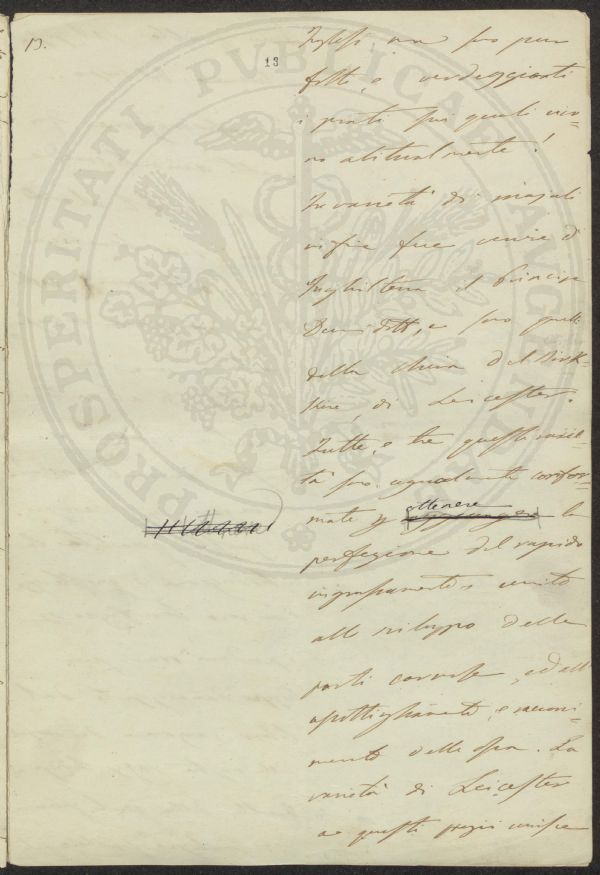 13.
13
Inglesi non son piu
folti, e verdeggianti
i prati sui quali vivo-
no abitualmente!
Tre varietà di majali
vi fece venire d'
Inghilterra il Principe
Demidoff, e sono quelle
della China del Berk-
shire, di Leicester.
Tutte, e tre queste varie-
tà son egualmente confor-
mate p ottenere la
perfezione del rapido
ingrassamento unito
allo sviluppo delle
parti carnose, ed all'
assottigliamento, e
mento delle ossa. La
varietà di Leicester
a questi pregi unisce
PROSPERITATI PVBLICAE AVGENDAE